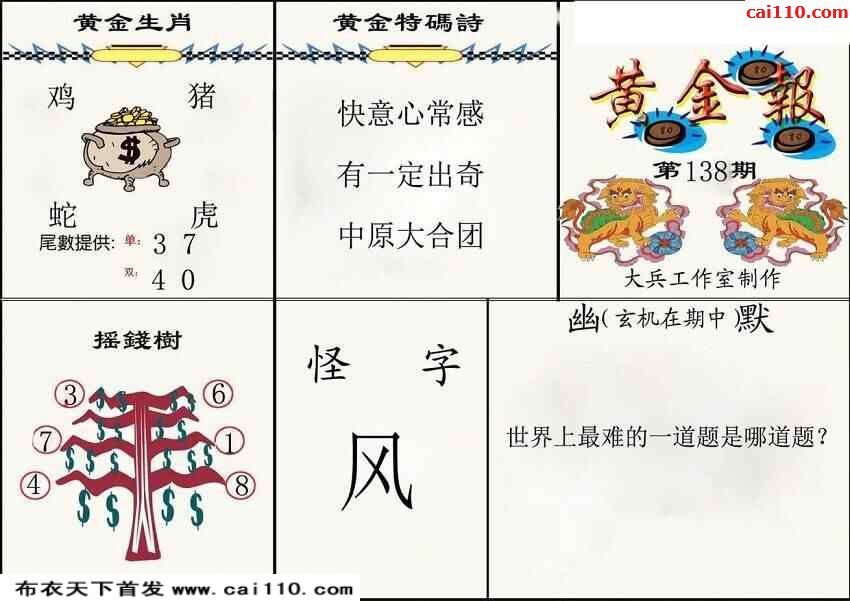 黄金生肖
鸡 猪
$
蛇 虎
尾數提供: 单: 3 7
双: 4 0
黄金特碼詩
快意心常感
有一定出奇
中原大合团
cai110.com
黄金報
80
80
80
第138期
大兵工作室制作
摇錢樹
3 6
$ $ $ $
7 1
$ $ $ $
4 8
$ $ $ $
怪 字
风
幽(玄机在期中)默
世界上最难的一道题是哪道题?
布衣天下首发 www.cai110.com